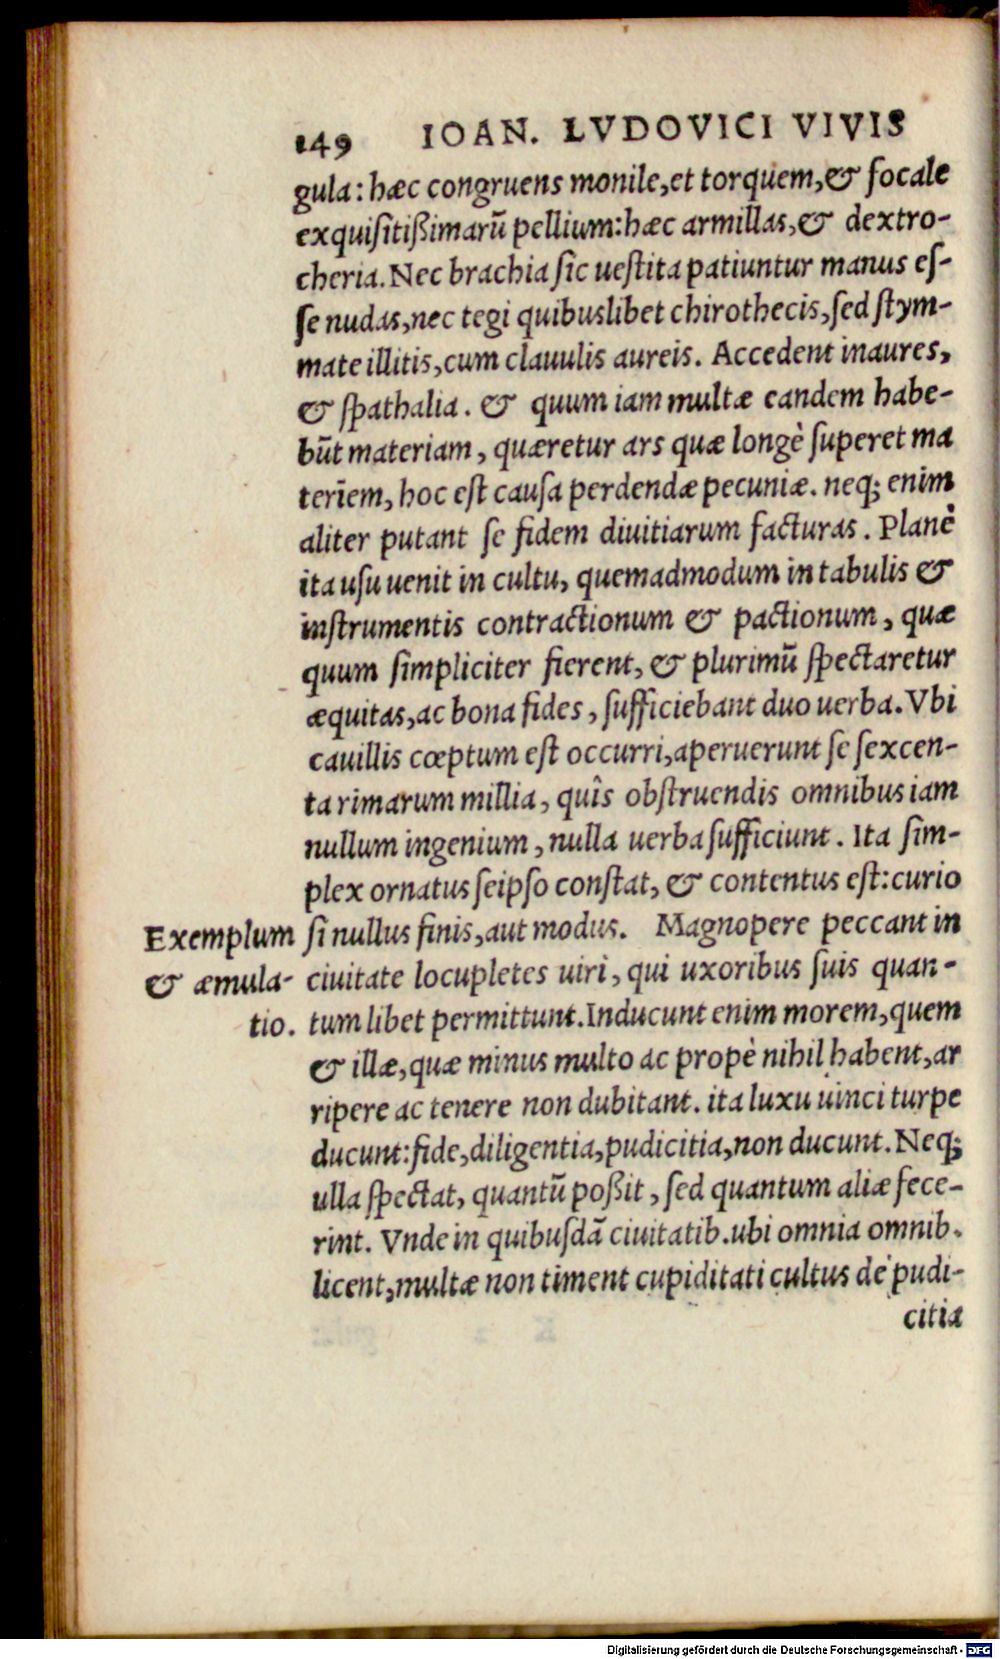 149 IOAN. LVDOVICI VIVIS
gula: hæc congruens monile, et torquem, & focale
exquisitißimarũ pellium: hæc armillas, & dextro-
cheria. Nec brachia sic uestita patiuntur manus es-
se nudas, nec tegi quibuslibet chirothecis, sed stym-
mate illitis, cum clauulis aureis. Accedent inaures,
& spathalia. & quum iam multæ eandem habe-
bũt materiam, quæretur ars quæ longè superet ma
teriem, hoc est causa perdendæ pecuniæ. neq; enim
aliter putant se fidem diuitiarum facturas. Planè
ita usu uenit in cultu, quemadmodum in tabulis &
instrumentis contractionum & pactionum, quæ
quum simpliciter fierent, & plurimũ spectaretur
æquitas, ac bona fides, sufficiebant duo uerba. Vbi
cauillis cœptum est occurri, aperuerunt se sexcen-
ta rimarum millia, quîs obstruendis omnibus iam
nullum ingenium, nulla uerba sufficiunt. Ita sim-
plex ornatus seipso constat, & contentus est: curio
si nullus finis, aut modus. Magnopere peccant in
ciuitate locupletes uiri, qui uxoribus suis quan-
tum libet permittunt. Inducunt enim morem, quem
& illæ, quæ minus multo ac propè nihil habent, ar
ripere ac tenere non dubitant. ita luxu uinci turpe
ducunt: fide, diligentia, pudicitia, non ducunt. Neq;
ulla spectat, quantũ poßit, sed quantum aliæ fece-
rint. Vnde in quibusdã ciuitatib. ubi omnia omnib.
licent, multæ non timent cupiditati cultus de pudi-
citia
Exemplum
& æmula-
tio.
Digitalisierung gefördert durch die Deutsche Forschungsgemeinschaft - DFG